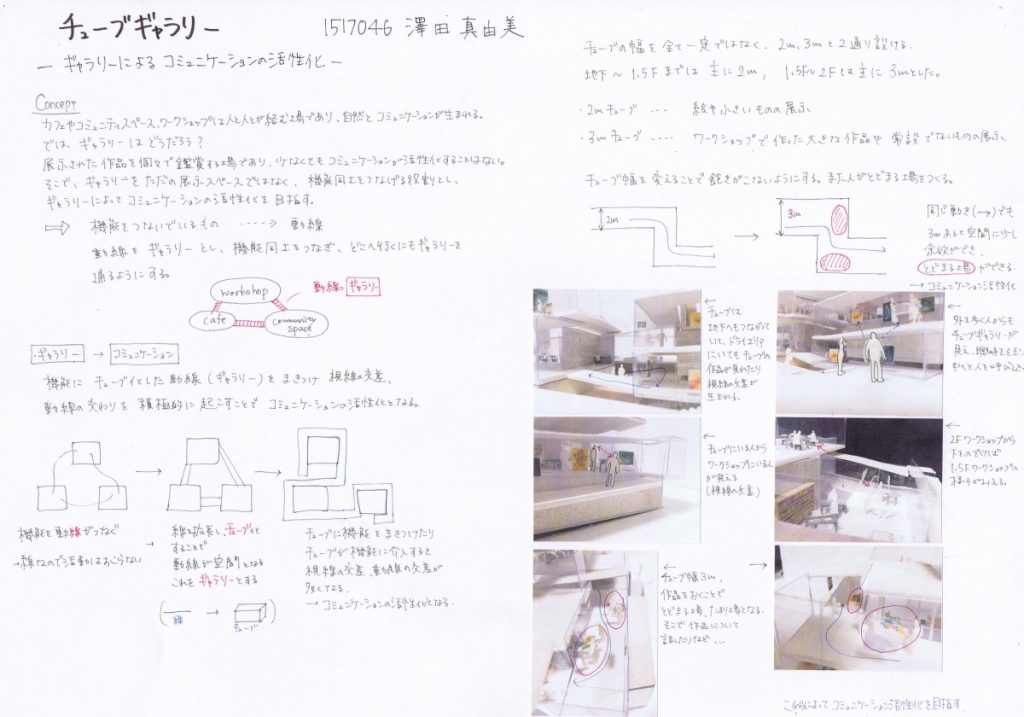 チューブギャラリー
1517046 澤田 真由美
― ギャラリーによる コミュニケーションの活性化 ―
Concept
カフェやコミュニティスペース、ワークショップは人と人とが絡む場であり、自然と コミュニケーションが生まれる。
では、ギャラリーは どうだろう？
展示された 作品を 個々で 鑑賞する場であり、少なくても コミュニケーションが活性化することはない。
そこで、ギャラリーを ただの 展示スペースではなく、機能同士をつなげる役割とし、
ギャラリーによって コミュニケーションの 活性化を 目指す。
⇒ 機能をつないでいるもの ----→ 動線
動線を ギャラリーとし、機能同士をつなぎ、どこへ行くにもギャラリーを
通るようにする。
workshop
cafe
community space
動線 ギャラリー
・ギャラリー → コミュニケーション
機能に チューブ化した 動線 (ギャラリー) を まきつけ 視線の交差、
動線の交わりを 積極的に 起こすことで コミュニケーションの活性化となる。
機能を動線がつなぐ
→ 線なので活動はおこらない
→ 線を拡張し、チューブ化
することで
動線が空間となる
これを ギャラリーとする
( 線 → チューブ )
チューブに機能を まきつけたり
チューブが機能に介入すると
視線の交差、動線の交差が
多くなる。
→ コミュニケーションの活性化となる。
チューブの幅を 全て一定ではなく、2m, 3mと2通り設ける。
地下～1.5Fまでは 主に 2m, 1.5F～2Fは主に 3mとした。
・2mチューブ ---- 絵や小さいものの展示、
・3mチューブ ---- ワークショップで作った大きな作品や 常設でないものの展示、
チューブ幅を 変えることで 飽きがこないようにする。また人がとどまる場をつくる。
2m
→
3m
同じ動き(→)でも
3mあると空間に少し
余裕ができ、
とどまる場ができる。
→ コミュニケーション活性化
← チューブは
地下へもつながって
いて、ドライエリア
にいても チューブの
作品が見れたり
視線の交差が
生まれる。
← 外を歩く人からも
チューブギャラリーが
見え、
中へと人を呼び込む
← チューブにいる人から
ワークショップにいる人
が見える
(視線の交差)
← 2Fワークショップから
下をのぞけば
1.5Fワークショップの
様子がみえる。
← チューブ幅3m,
作品をおくことで
とどまる場、たまり場となる。
そこで 作品について
話したりなど...
これらによって コミュニケーション活性化を目指す.